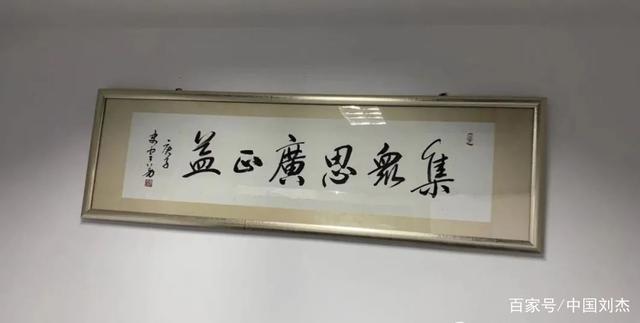 集眾思廣正益
庚子
百家号/中国刘杰